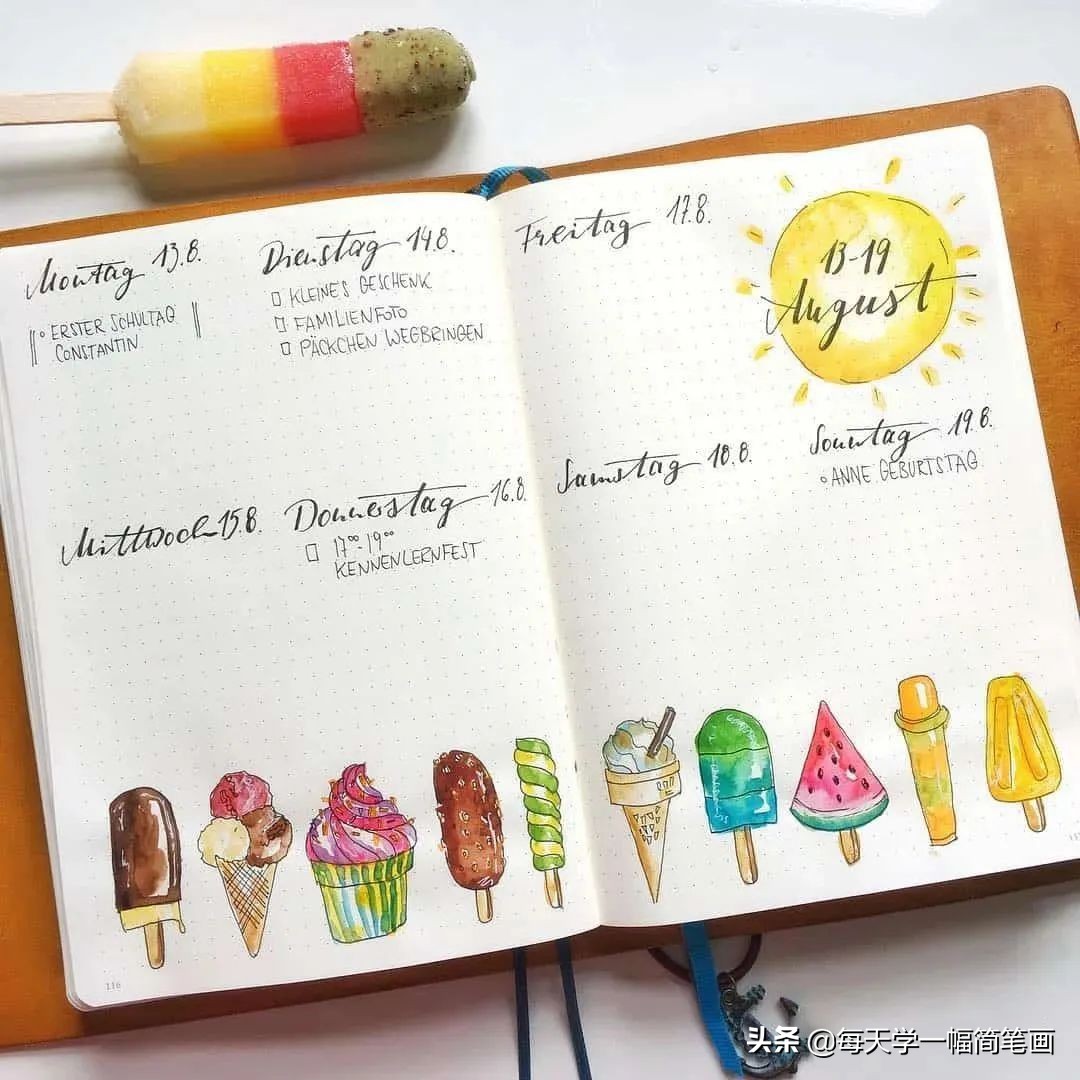 Montag 13.8.
ERSTER SCHULTAG
CONSTANTIN
Dienstag 14.8.
KLEINES GESCHENK
FAMILIENFOTO
PÄCKCHEN WEGBRINGEN
Mittwoch 15.8.
Donnerstag 16.8.
17⁰⁰-19⁰⁰
KENNENLERNFEST
116
Freitag 17.8.
13-19
August
Samstag 18.8.
Sonntag 19.8.
ANNE GEBURTSTAG
头条 @每天学一幅简笔画